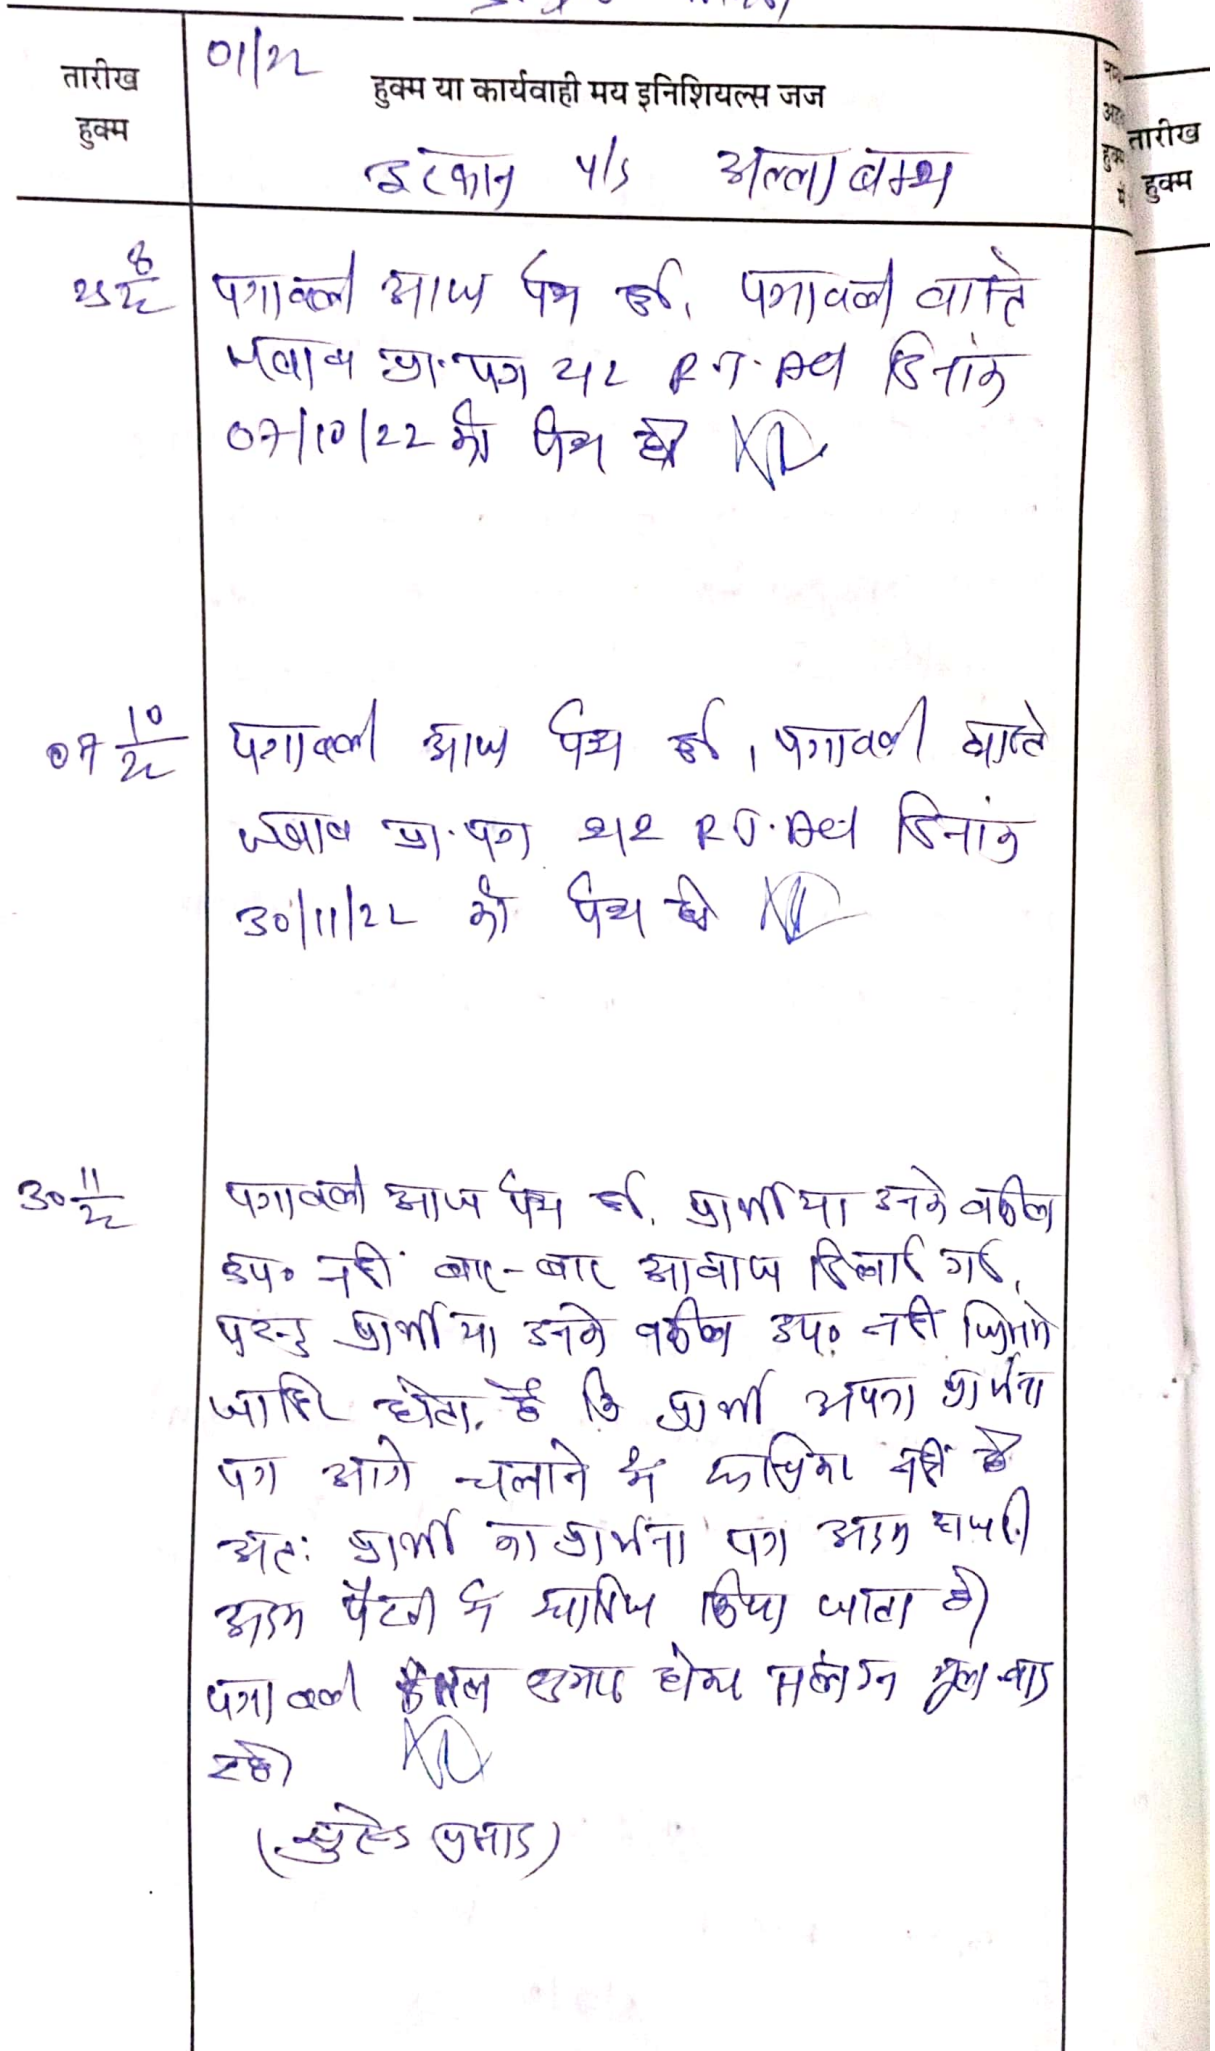 01/22
तारीख
हुक्म
हुक्म या कार्यवाही मय इनिशियल्स जज
v/s अल्लाबख्श
तारीख
हुक्म
25 8/22
पत्रावली आज पेश हुई। पत्रावली वास्ते
जवाब प्रा. पत्र 212 R.T. Act दिनांक
07/10/22 को पेश हो
07 10/22
पत्रावली आज पेश हुई। पत्रावली वास्ते
जवाब प्रा. पत्र 212 R.T. Act दिनांक
30/11/22 को पेश हो
30 11/22
पत्रावली आज पेश हुई। प्रार्थी या उनके वकील
उप० नहीं बार-बार आवाज दिलाई गई,
परन्तु प्रार्थी या उनके वकील उप० नहीं जिससे
जाहिर होता है कि प्रार्थी अपना प्रार्थना
पत्र आगे चलाने में नहीं है
अतः प्रार्थी का प्रार्थना पत्र अदम हाजरी
अदम पैरवी में खारिज किया जाता है।
पत्रावली फैसल शुमार होकर संलग्न मूल वाद
रहे।